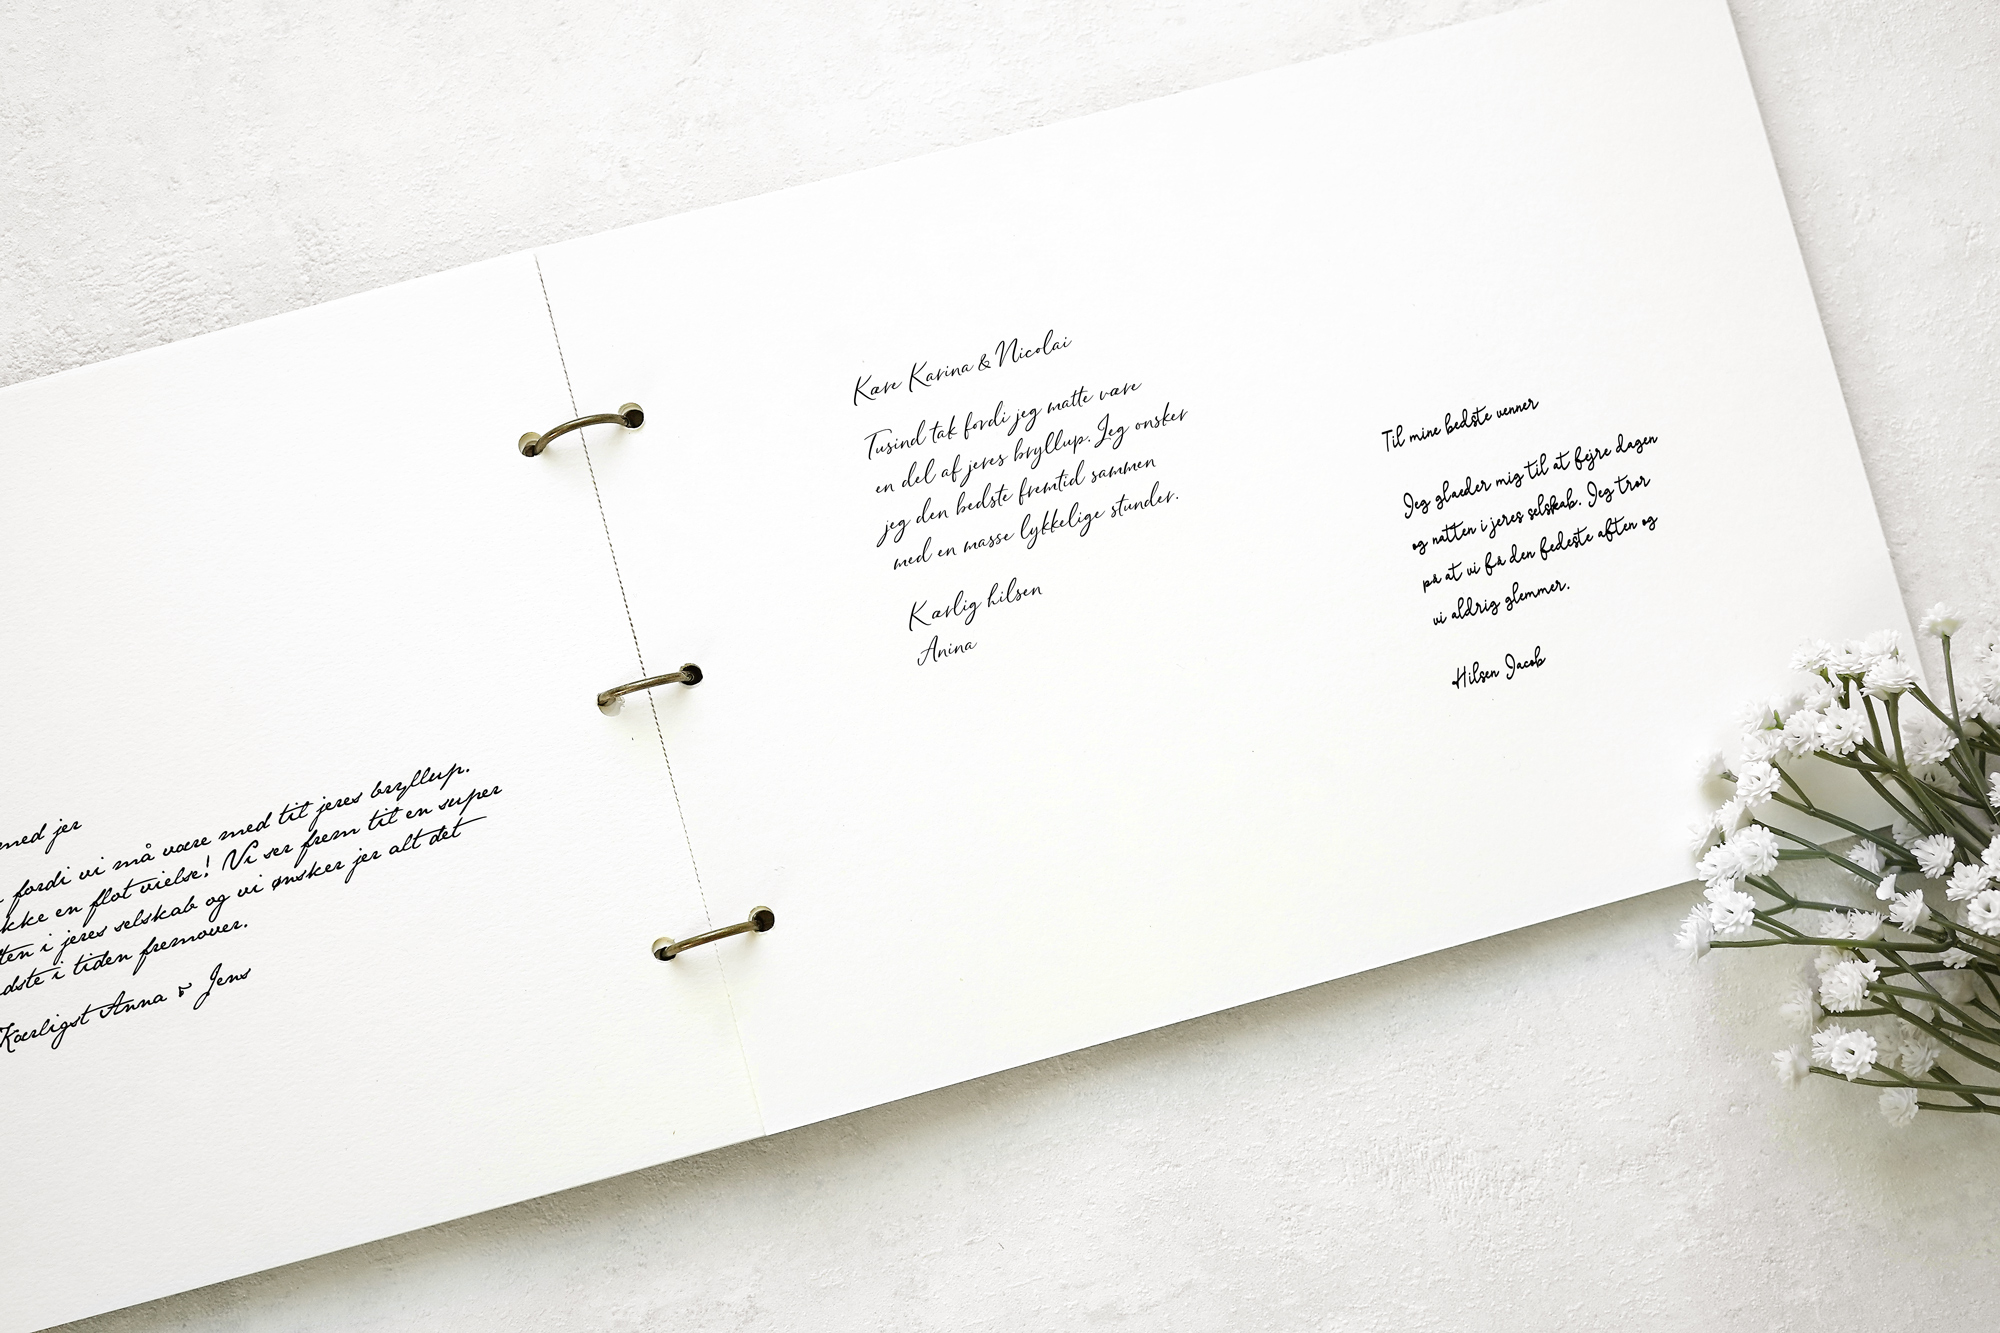 med jer
fordi vi må være med til jeres bryllup.
kke en flot vielse! Vi ser frem til en super
ten i jeres selskab og vi ønsker jer alt det
dste i tiden fremover.
Kærligst Anna & Jens
Kære Karina & Nicolai
Tusind tak fordi jeg matte være
en del af jeres bryllup. Jeg onsker
jeg den bedste fremtid sammen
med en masse lykkelige stunder.
Kærlig hilsen
Anina
Til mine bedste venner
Jeg glaeder mig til at fejre dagen
og natten i jeres selskab. Jeg tror
på at vi får den fedeste aften og
vi aldrig glemmer.
Hilsen Jacob